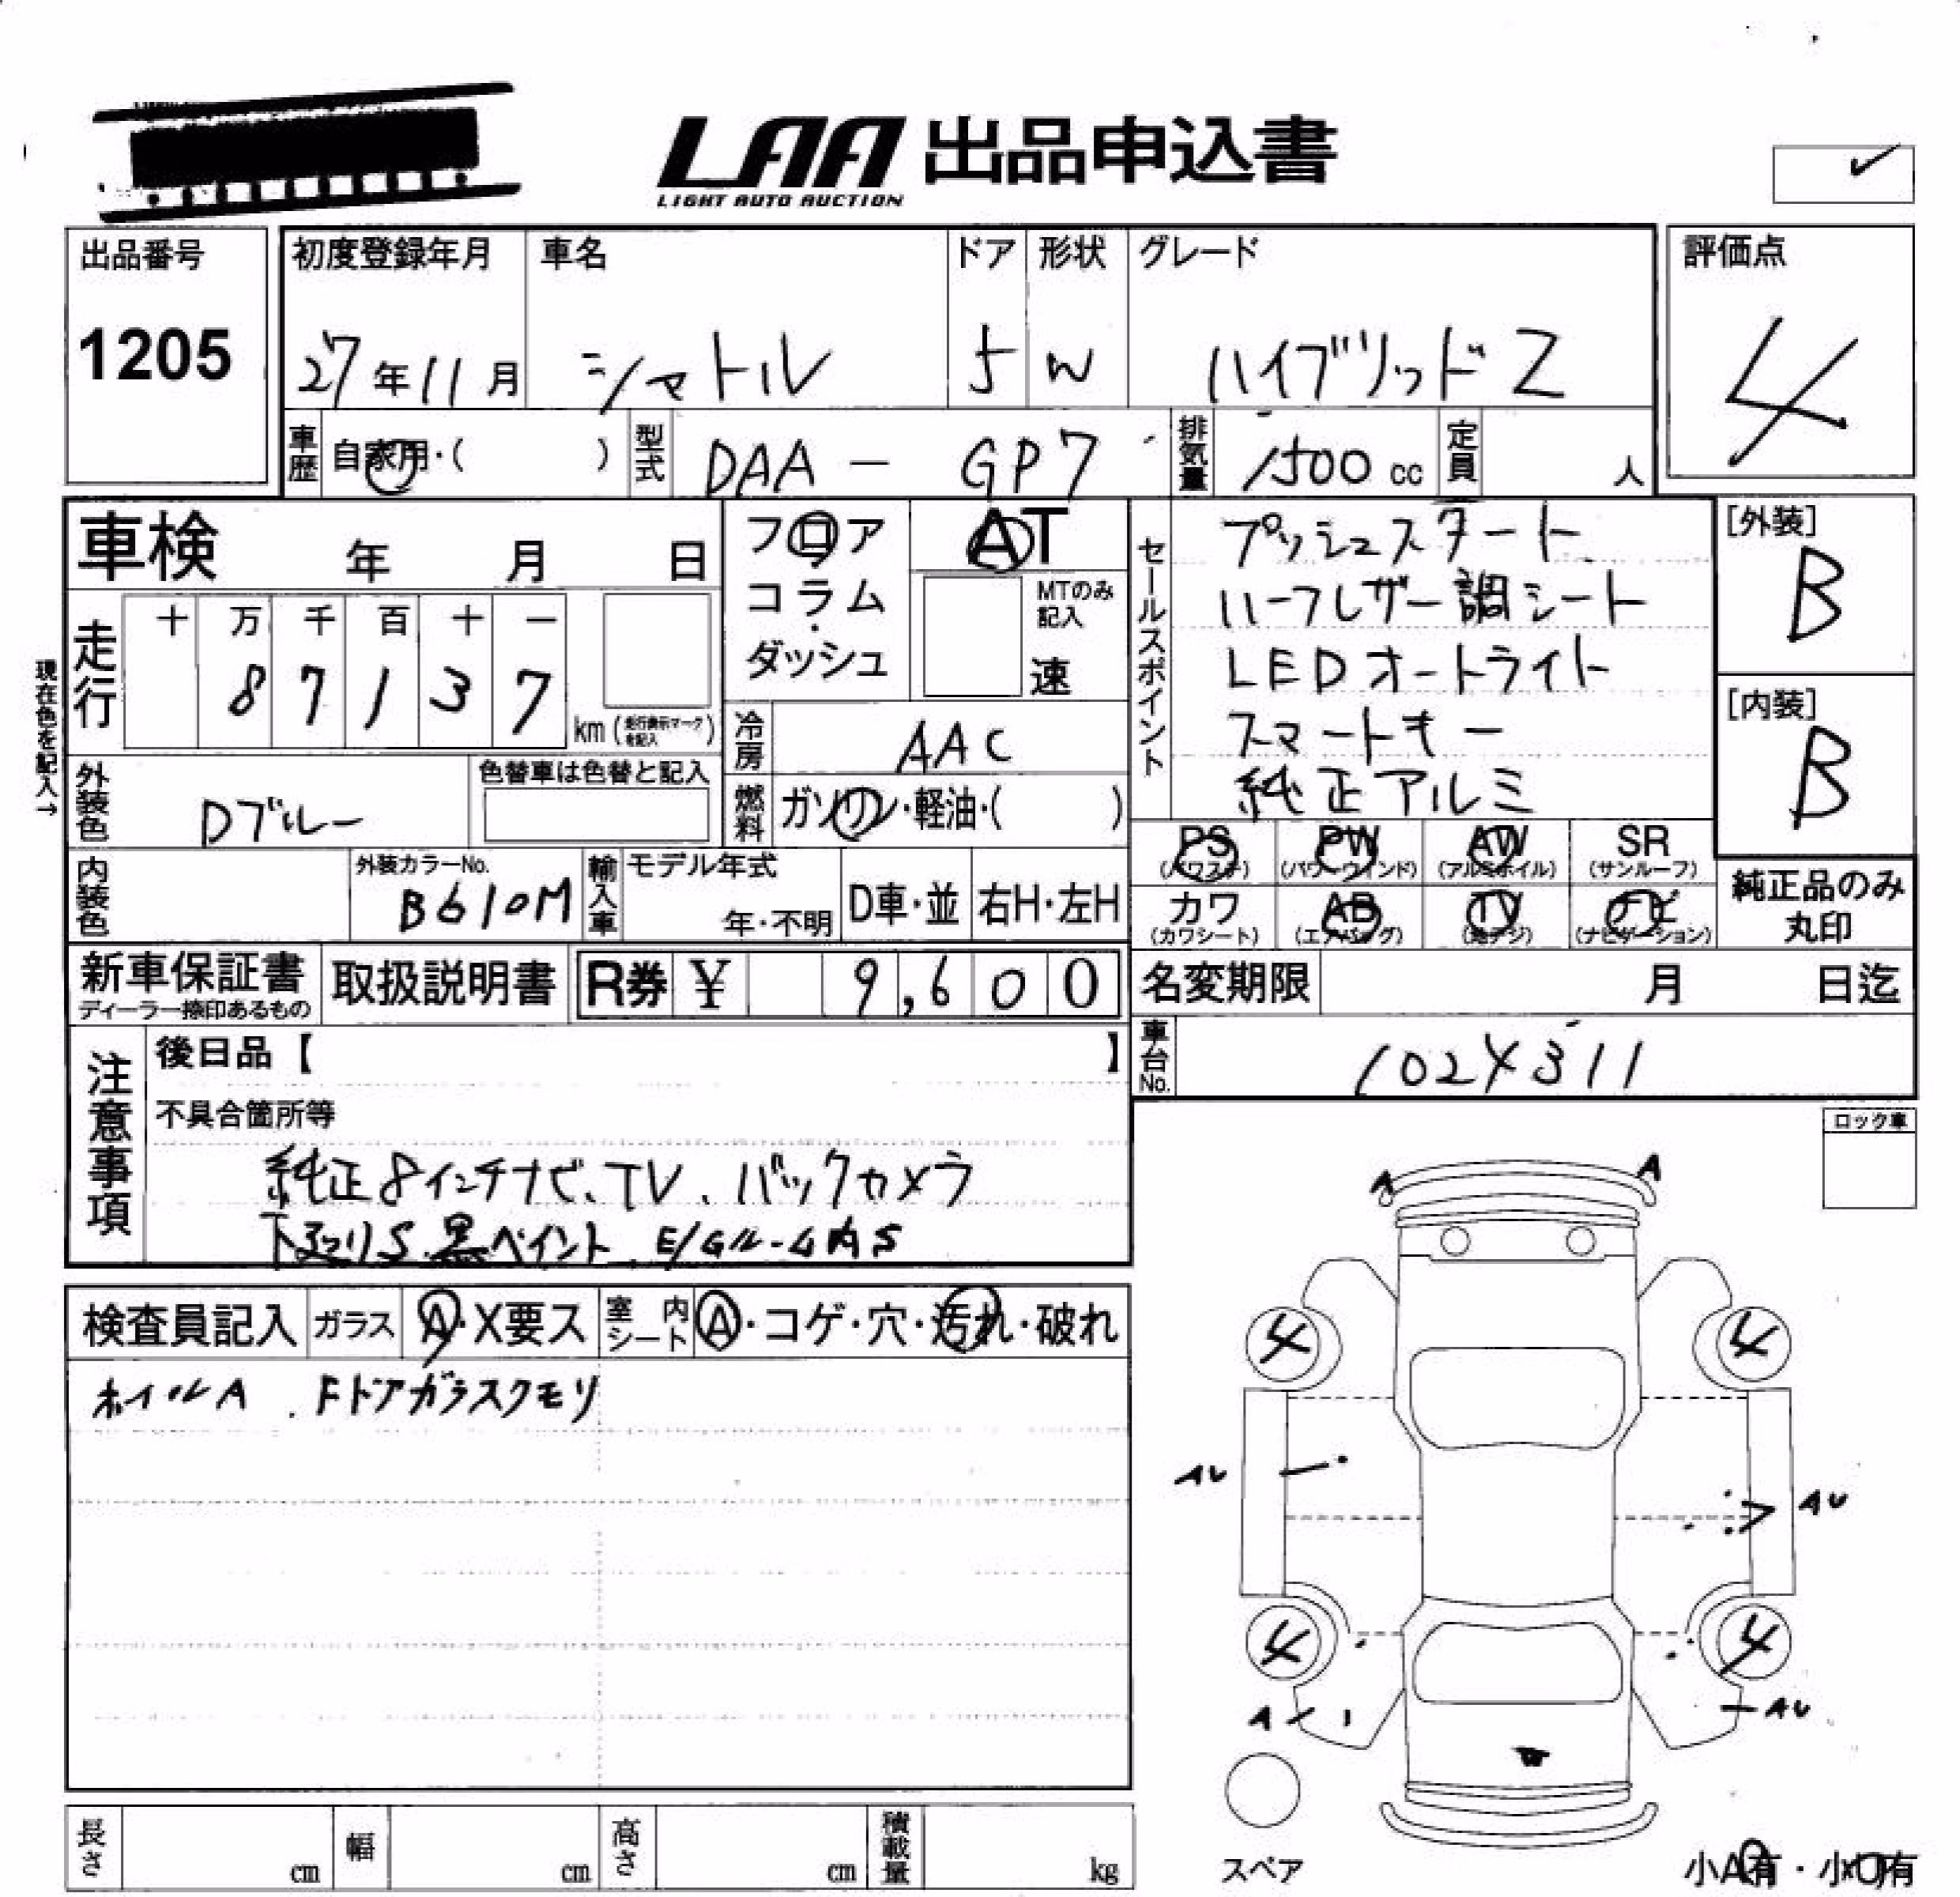 LAA 出品申込書
LIGHT AUTO AUCTION
出品番号
1205
初度登録年月 車名 ドア 形状 グレード
27年11月 シャトル 5 W ハイブリッド Z
評価点
4
車歴 自家用・( ) 型式 DAA - GP7 排気量 1500 cc 定員 人
車検 年 月 日
フロア
コラム
ダッシュ
AT
MTのみ記入
速
走行 十 万 千 百 十 一
8 7 1 3 7 km (走行表示マークを記入)
現在色を記入→
冷房 AAC
外装色 Dブルー 色替車は色替と記入
燃料 ガソリン・軽油・( )
内装色 外装カラーNo. B610M
輸入車 モデル年式 年・不明 D車・並 右H・左H
セールスポイント
プッシュスタート
ハーフレザー調シート
LEDオートライト
スマートキー
純正アルミ
[外装]
B
[内装]
B
PS PW AW SR
(パワステ) (パワーウインド) (アルミホイル) (サンルーフ)
カワ AB TV ナビ
(カワシート) (エアバッグ) (地デジ) (ナビゲーション)
純正品のみ
丸印
新車保証書 取扱説明書 R券 ¥ 9,600
ディーラー捺印あるもの
名変期限 月 日迄
車台No. 1024311
注意事項
後日品【 】
不具合箇所等
純正8インチナビ、TV、バックカメラ
下廻りS 黒ペイント E/Gルーム内S
検査員記入 ガラス A・X要ス 室内シート A・コゲ・穴・汚れ・破れ
ホイルA . Fドアガラスクモリ
ロック車
A A
4 4
AU AU
4 4
A AU
W
スペア
小A有・小U有
長さ cm 幅 cm 高さ cm 積載量 kg